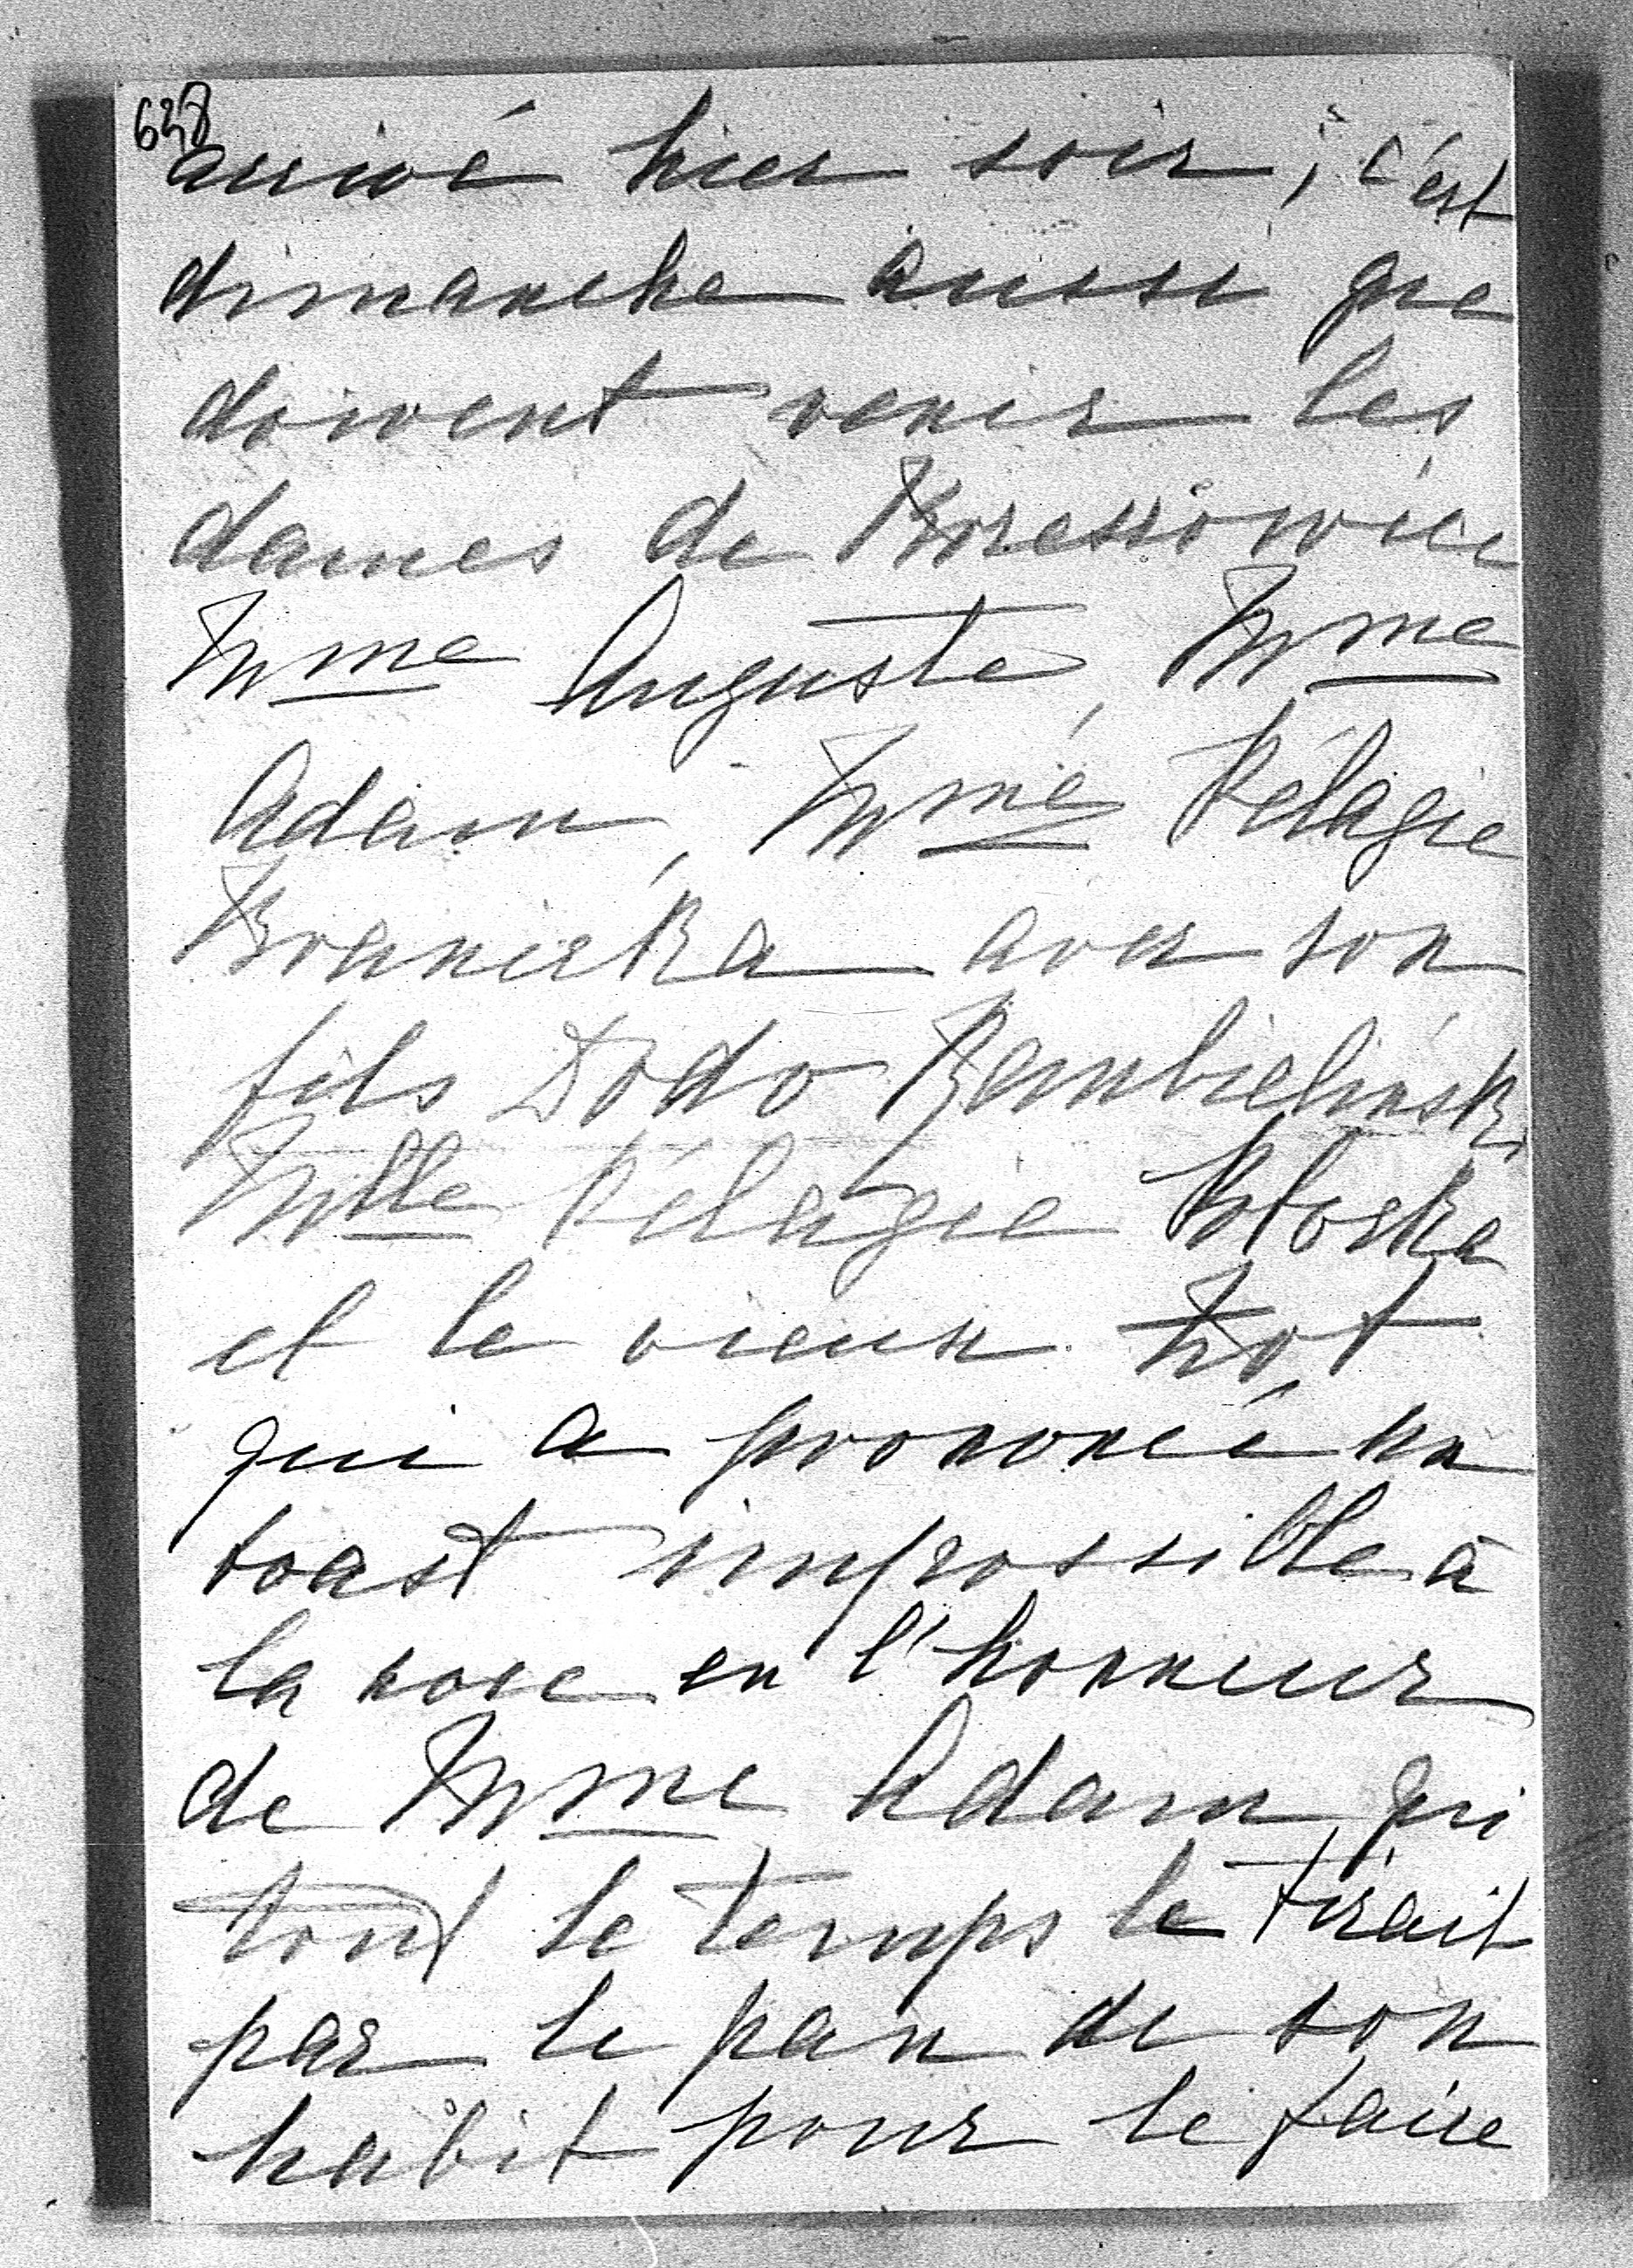 628
arrivé hier soir ; c'est
dimanche aussi que
doivent venir les
dames de Krzeszowice
Mme Auguste, Mme
Adam, Mme Pélagie
Branicka avec son
fils Dodo Rembielinski
Mlle Pélagie
et le vieux
qui a prononcé un
toast impossible à
la noce en l'honneur
de Mme Adam qui
tout le temps le tirait
par le pan de son
habit pour le faire